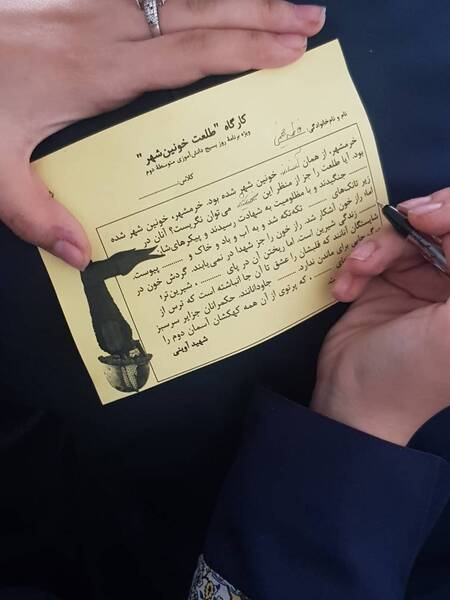 نام و نام‌خانوادگی:
کارگاه "طلعت خونین‌شهر"
ویژه برنامهٔ روز بسیج دانش‌آموزی متوسطهٔ دوم
کلاس:
خرمشهر، از همان خونین شهر شده بود. خرمشهر، خونین شهر شده
بود. آیا طلعت را جز از منظر این می‌توان نگریست؟ آنان در
جنگیدند و با مظلومیت به شهادت رسیدند و پیکرهای‌شان
زیر تانک‌های ........ تکه‌تکه شد و به آب و باد و خاک و ........ پیوست.
اما، راز خون آشکار شد. راز خون را جز شهدا در نمی‌یابند. گردش خون در
زندگی شیرین است. اما ریختن آن در پای ........، شیرین‌تر؛
شایستگان آنانند که قلبشان را عشق تا آن جا انباشته است که ترس از
جایی برای ماندن ندارد. ........ جاودانانند. حکمرانان جزایر سرسبز
که پرتوی از آن همه کهکشان آسمان دوم را
شهید آوینی